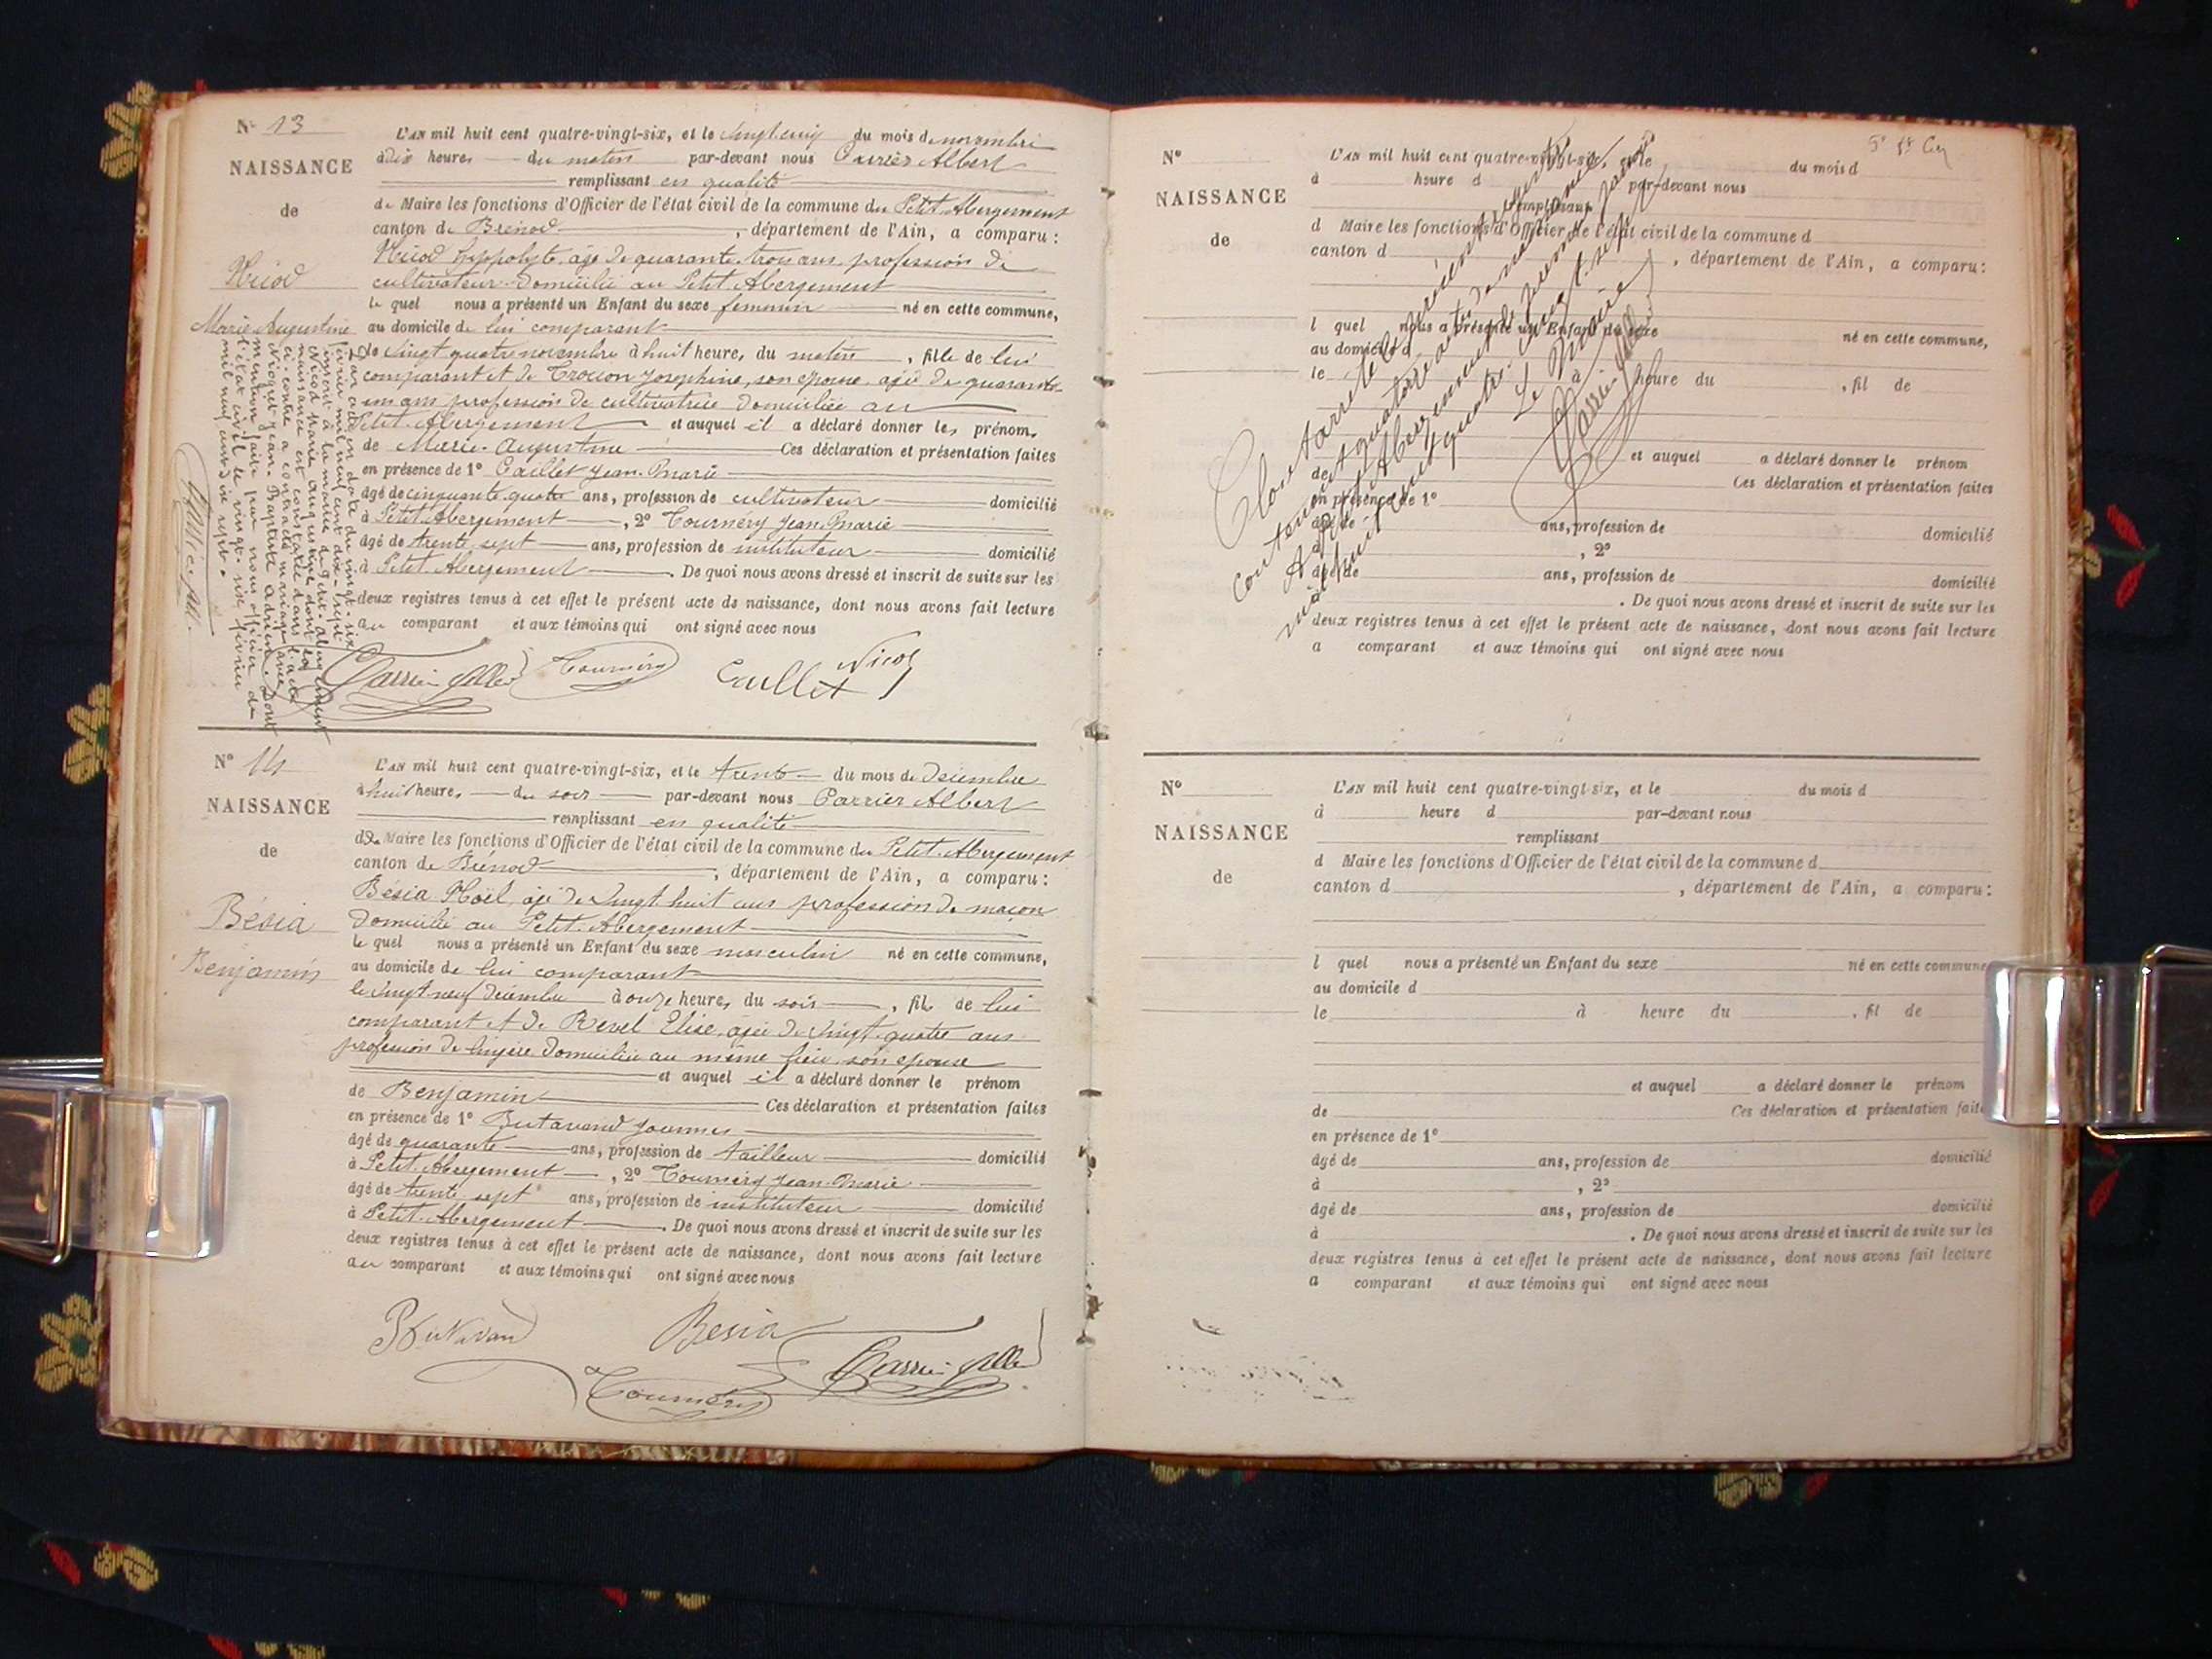 N° 13
NAISSANCE
de
Nicod
Marie Augustine
L'AN mil huit cent quatre-vingt-six, et le vingt cinq du mois de novembre
à dix heures du matin par-devant nous Carrier Albert
remplissant en qualité
de Maire les fonctions d'Officier de l'état civil de la commune du Petit-Abergement
canton de Brénod, département de l'Ain, a comparu :
Nicod hippolyte, âgé de quarante trois ans, profession de
cultivateur domicilié au Petit Abergement
le quel nous a présenté un Enfant du sexe feminin né en cette commune,
au domicile de lui comparant
le vingt quatre novembre à huit heures, du matin, fille de lui
comparant et de Trocon Josephine, son epouse agée de quarante
un ans profession de cultivatrice domiciliée au
Petit-Abergement et auquel il a déclaré donner les prénoms
de Marie-Augustine Ces déclaration et présentation faites
en présence de 1° Caillet Jean-Marie
âgé de cinquante quatre ans, profession de cultivateur domicilié
à Petit-Abergement, 2° Tournéry Jean-Marie
âgé de trente sept ans, profession de instituteur domicilié
à Petit-Abergement. De quoi nous avons dressé et inscrit de suite sur les
deux registres tenus à cet effet le présent acte de naissance, dont nous avons fait lecture
au comparant et aux témoins qui ont signé avec nous
Par acte en date du vingt-six
février mil neuf cent dix sept
inscrit à la mairie de Petit-Abergement
Nicod Marie Augustine dont la
naissance est constatée dans l'acte
ci-contre a contracté mariage avec
Jean-Baptiste Adrien. Dont
mention faite par nous officier de
l'état civil le vingt-six février
mil neuf cent dix sept.
Carrier Alb
Tournéry
Caillet
Nicod
N° 14
NAISSANCE
de
Bésia
Benjamin
L'AN mil huit cent quatre-vingt-six, et le trente du mois de décembre
à huit heures du soir par-devant nous Carrier Albert
remplissant en qualité
de Maire les fonctions d'Officier de l'état civil de la commune du Petit-Abergement
canton de Brénod, département de l'Ain, a comparu :
Bésia Noël, âgé de vingt huit ans profession de maçon
domicilié au Petit-Abergement
le quel nous a présenté un Enfant du sexe masculin né en cette commune,
au domicile de lui comparant
le vingt neuf décembre à onze heures du soir, fils de lui
comparant et de Revel Elise, agée de vingt-quatre ans
profession de lingère domiciliée au même lieu, son epouse
et auquel il a déclaré donner le prénom
de Benjamin Ces déclaration et présentation faites
en présence de 1° Butavand
âgé de quarante ans, profession de tailleur domicilié
à Petit-Abergement, 2° Tournéry Jean-Marie
âgé de trente sept ans, profession de instituteur domicilié
à Petit-Abergement. De quoi nous avons dressé et inscrit de suite sur les
deux registres tenus à cet effet le présent acte de naissance, dont nous avons fait lecture
au comparant et aux témoins qui ont signé avec nous
Butavand
Besia
Tournéry
Carrier Alb
N°
NAISSANCE
de
L'AN mil huit cent quatre-vingt-six, et le du mois d
à heure d par-devant nous
remplissant
d Maire les fonctions d'Officier de l'état civil de la commune d
canton d , département de l'Ain, a comparu :
l quel nous a présenté un Enfant du sexe né en cette commune,
au domicile d
le à heure du , fil de
et auquel a déclaré donner le prénom
de Ces déclaration et présentation faites
en présence de 1°
âgé de ans, profession de domicilié
à , 2°
âgé de ans, profession de domicilié
à . De quoi nous avons dressé et inscrit de suite sur les
deux registres tenus à cet effet le présent acte de naissance, dont nous avons fait lecture
a comparant et aux témoins qui ont signé avec nous
Clos et arrêté le présent registre
contenant quatorze actes de naissance,
A Petit-Abergement le premier janvier
mil huit cent quatre-vingt-sept
Le Maire
Carrier Alb
N°
NAISSANCE
de
L'AN mil huit cent quatre-vingt-six, et le du mois d
à heure d par-devant nous
remplissant
d Maire les fonctions d'Officier de l'état civil de la commune d
canton d , département de l'Ain, a comparu :
l quel nous a présenté un Enfant du sexe né en cette commune
au domicile d
le à heure du , fil de
et auquel a déclaré donner le prénom
de Ces déclaration et présentation faite
en présence de 1°
âgé de ans, profession de domicilié
à , 2°
âgé de ans, profession de domicilié
à . De quoi nous avons dressé et inscrit de suite sur les
deux registres tenus à cet effet le présent acte de naissance, dont nous avons fait lecture
a comparant et aux témoins qui ont signé avec nous